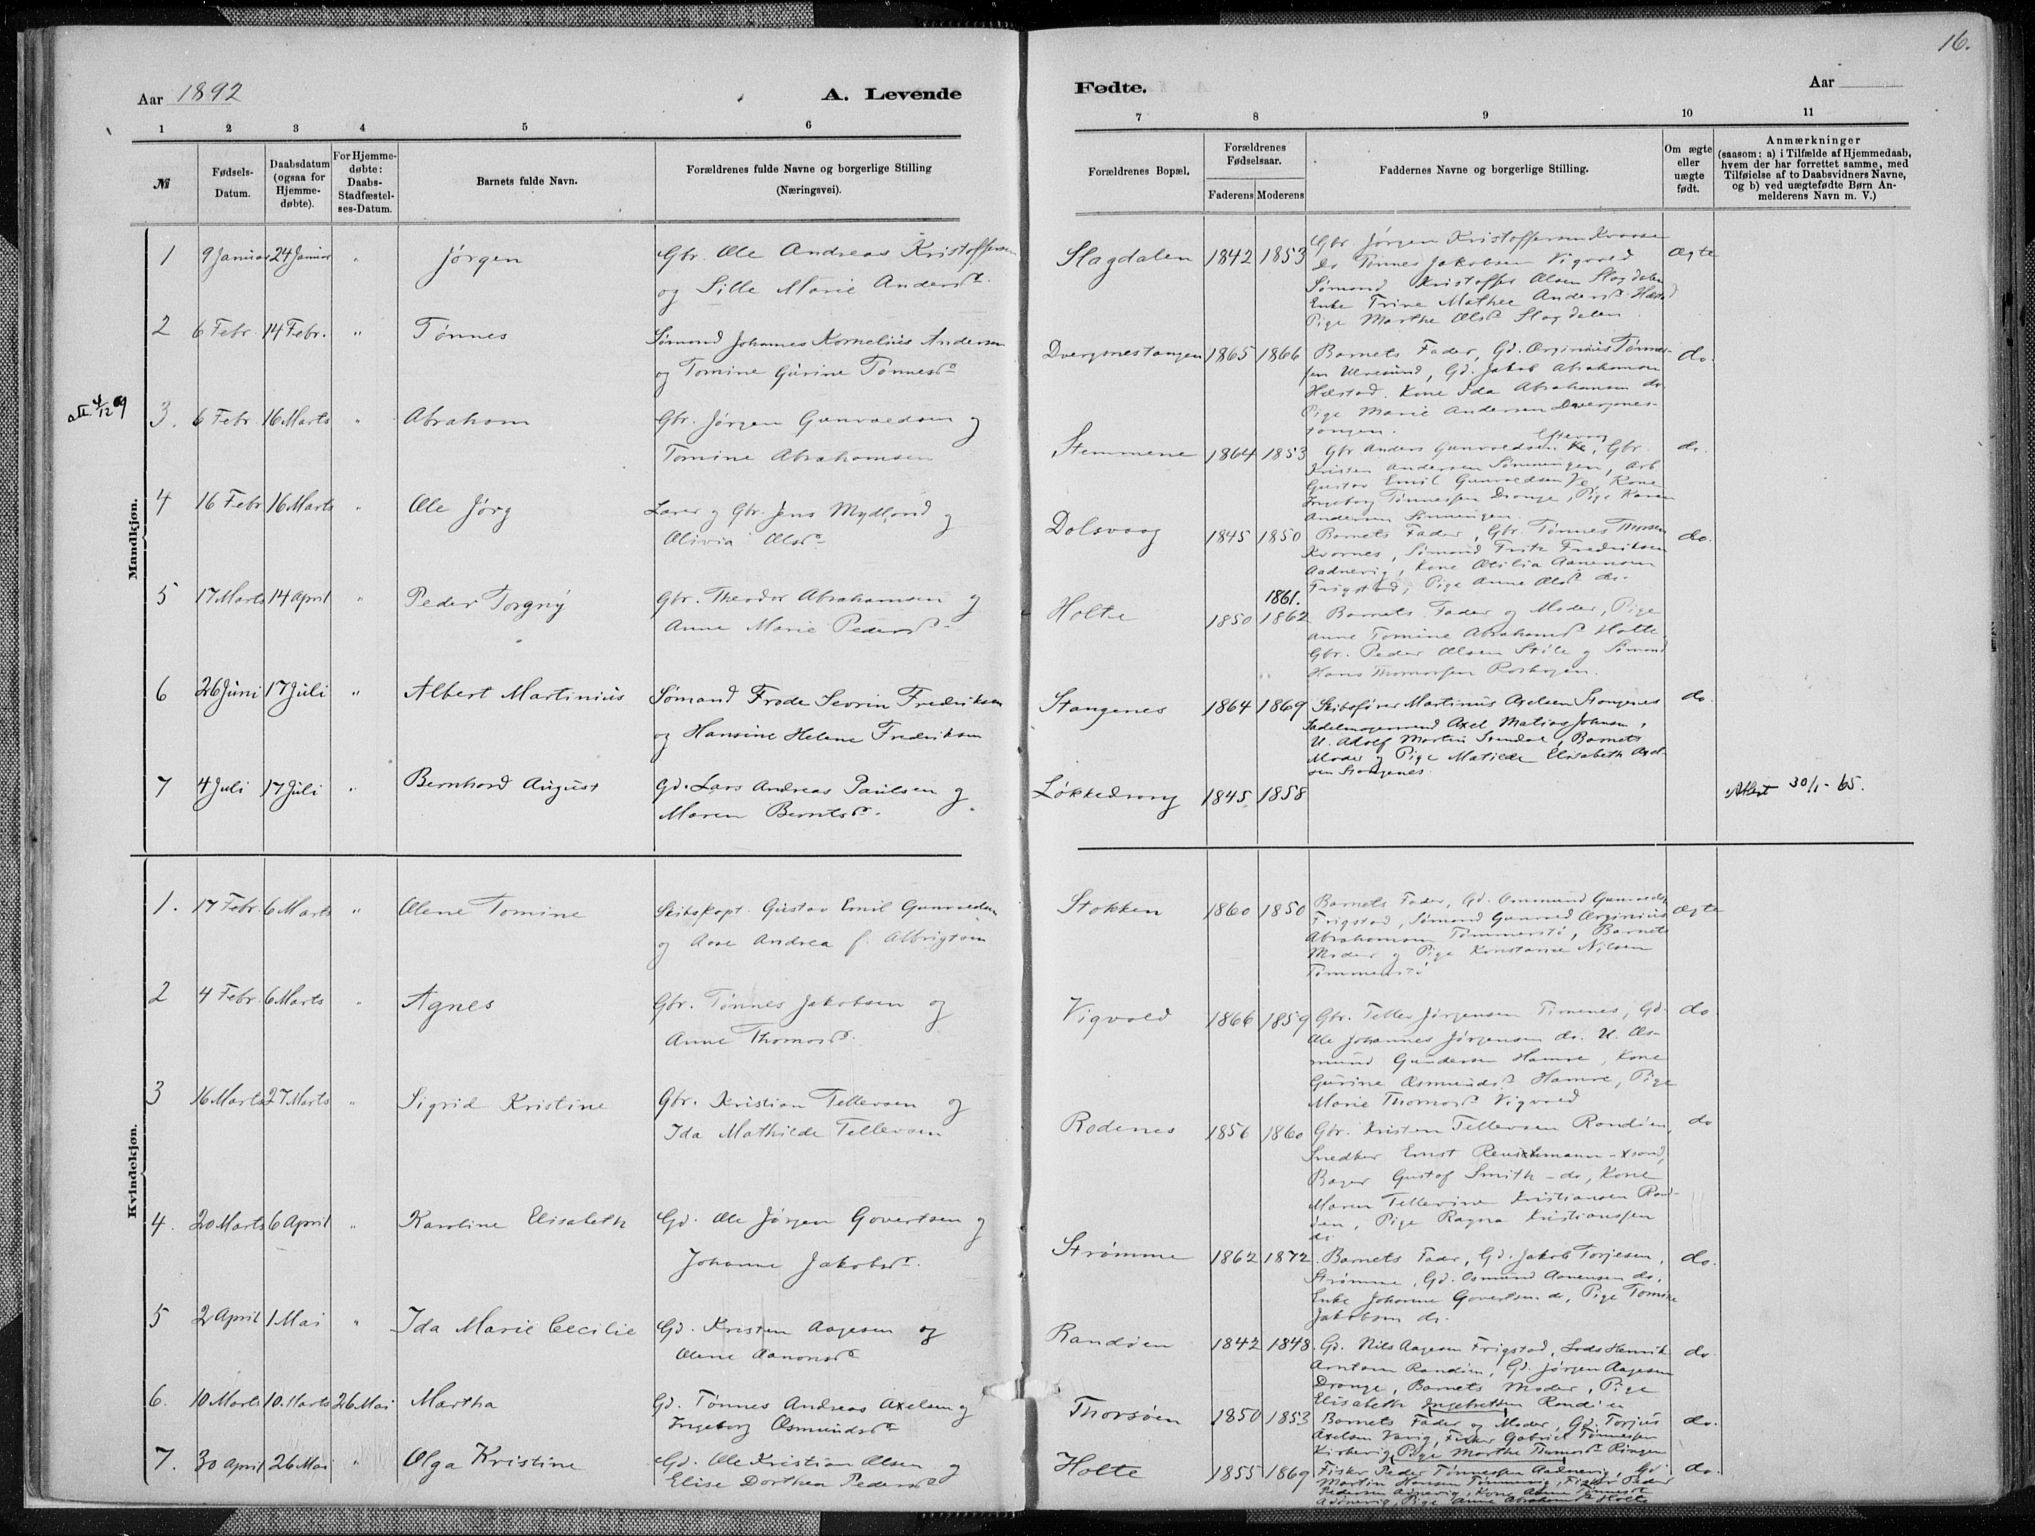 16.
Aar 1892
A. Levende
Fødte.
Aar
1 2 3 4 5 6
7 8 9 10 11
№
Fødsels-
Datum.
Daabsdatum
(ogsaa for
Hjemme-
døbte).
For Hjemme-
døbte:
Daabs-
Stadfæstel-
ses-Datum.
Barnets fulde Navn.
Forældrenes fulde Navne og borgerlige Stilling
(Næringsvei).
Forældrenes Bopæl.
Forældrenes
Fødselsaar.
Faderens Moderens
Faddernes Navne og Stilling.
Om ægte
eller
uægte
født.
Anmærkninger
(saasom: a) i Tilfælde af Hjemmedaab,
hvem der har forrettet samme, med
Tilføielse af to Daabsvidners Navne,
og b) ved uægtefødte Børn An-
melderens Navn m. V.)
Mandkjøn.
1 9 Januar 24 Januar " Jørgen
Gbr. Ole Andreas Kristoffersen
og Sille Marie Andersd.
Slagdalen 1842 1853
Gbr Jørgen Kristoffersen
Do Tønnes Jakobsen Vigvold
Sømand Kristoffer Olsen Slagdalen
Enke Trine Mathea Andersd.
Pige Marthe Olsd. Slagdalen
Ægte
2 6 Febr. 14 Febr. " Tønnes
Sømand Johannes Kornelius Andersen
og Tomine Gurine Tønnesd.
Dvergsnestangen 1865 1866
Barnets Fader, Gd. Tønnes-
sen Ulvesund, Gd. Jakob Abrahamsen
Hæstad. Kone Ida Abrahamsen do
Pige Marie Andersen Dvergsnes-
tangen.
do.
3. 6 Febr. 16 Marts " Abraham
Gbr. Jørgen Gunvaldsen og
Tomine Abrahamsen
Stemmene 1864 1853
Gbr Anders Gunvaldsen, Gbr.
Kristen Andersen Sønningen, Arb
Gustav Emil Gunvaldsen Ve, Kone
Ingeborg Tønnessen Drange, Pige Karen
Andersen Sønningen.
do.
4 16 Febr 16 Marts " Ole Jørg
Lærer og Gbr. Jens Mydland og
Olivia Olsd.
Dolsvaag 1845 1850
Barnets Fader, Gbr. Tønnes Thorsen
Kvarnes, Sømand Fritz Fredriksen
Aadnevig, Kone Otilia Aanensen
Frigstad, Pige Anne Olsd. do.
do.
5 17 Marts 14 April " Peder Torgny
Gbr. Theodor Abrahamsen og
Anne Marie Pedersd.
1861.
Holte 1850 1862
Barnets Fader og Moder, Pige
Anne Tomine Abrahamsd. Holte
Gbr. Peder Olsen Støle og Sømand
Hans Thomassen
6 26 Juni 17 Juli " Albert Martinius
Sømand Frode Severin Fredriksen
og Hansine Helene Fredriksen
Stangenes 1864 1869
Skibsfører Martinus Axelsen Stangenes
Sadelmagersvend Axel Matias Johnsen,
U. Adolf Martin, Barnets
Moder og Pige Matilde Elisabeth Axel-
sen Stangenes.
do.
7 4 Juli 17 Juli " Bernhard August
Gd. Lars Andreas Paulsen og
Maren Berntsd.
Løkkedrang 1845 1858
Attest 30/1-65.
Kvindekjøn.
1. 17 Febr. 6 Marts " Olene Tomine
Skibskapt. Gustav Emil Gunvaldsen
og Aase Andrea f. Albrigtsen
Stokken 1860 1850
Barnets Fader, Gd. Ommund Gunvalds.
Frigstad, Sømand Gunvald
Abrahamsen Tømmerstø, Barnets
Moder og Pige Konstanse Nilsen
Tømmerstø
Ægte
2 4 Febr. 6 Marts " Agnes
Gbr. Tønnes Jakobsen og
Anne Thomasd.
Vigvold 1866 1859
Gbr. Tellef Jørgensen Timenes, Gd.
Ole Johannes Jørgensen do. U. Os-
mund Gundersen Hamre, Kone
Gurine Osmundsd. Hamre, Pige
Marie Thomasd. Vigvold
do.
3 16 Marts 27 Marts " Sigrid Kristine
Gbr. Kristian Tellevsen og
Ida Mathilde Tellevsen
Rodenes 1856 1860
Gbr. Kristen Tellevsen Randøen,
Snedker Ernst
Bager Gustof Smith - do, Kone
Maren Tellevine Kristiansen Rand-
øen, Pige Ragna Kristianssen
do.
do
4. 20 Marts 6 April " Karoline Elisabeth
Gd. Ole Jørgen Govertsen og
Johanne Jakobsd.
Strømme 1862 1872
Barnets Fader, Gd. Jakob Torjesen,
Strømme, Gd. Osmund Aanensen do.
Enke Johanne Govertsen do, Pige Tomine
Jakobsen do.
do.
5 2 April 1 Mai " Ida Marie Cecilie
Gd. Kristen Aagesen og
Olene Aanonsd.
Randøen 1842 1848
Gd. Nils Aagesen Frigstad, Lods Henrik
Arntsen Randøen, Gd. Jørgen Aagesen
Drange, Barnets Moder, Pige
Elisabeth Ingebretsen Randøen
do.
6. 10 Marts 10. Marts 26 Mai Martha
Gd. Tønnes Andreas Axelsen og
Ingeborg Osmundsd.
Thorsøen 1850 1853
Barnets Fader og Moder, Gd. Torjus
Axelsen Vaavig, Fisker Gabriel Tønnessen
Kirkevig, Pige Marthe Thomasd. Ringen
do.
7. 30 April 26 Mai " Olga Kristine
Gd. Ole Kristian Olsen og
Elise Dorthea Pedersd.
Holte 1855 1869
Fisker Peder Tønnessen Aadnevig, Gd.
Martin Hansen, Fisker Peder
Pedersen Adnevig, Kone Anne Tønnesd.
Adnevig, Pige Anne Abrahamsd. Holte
do.